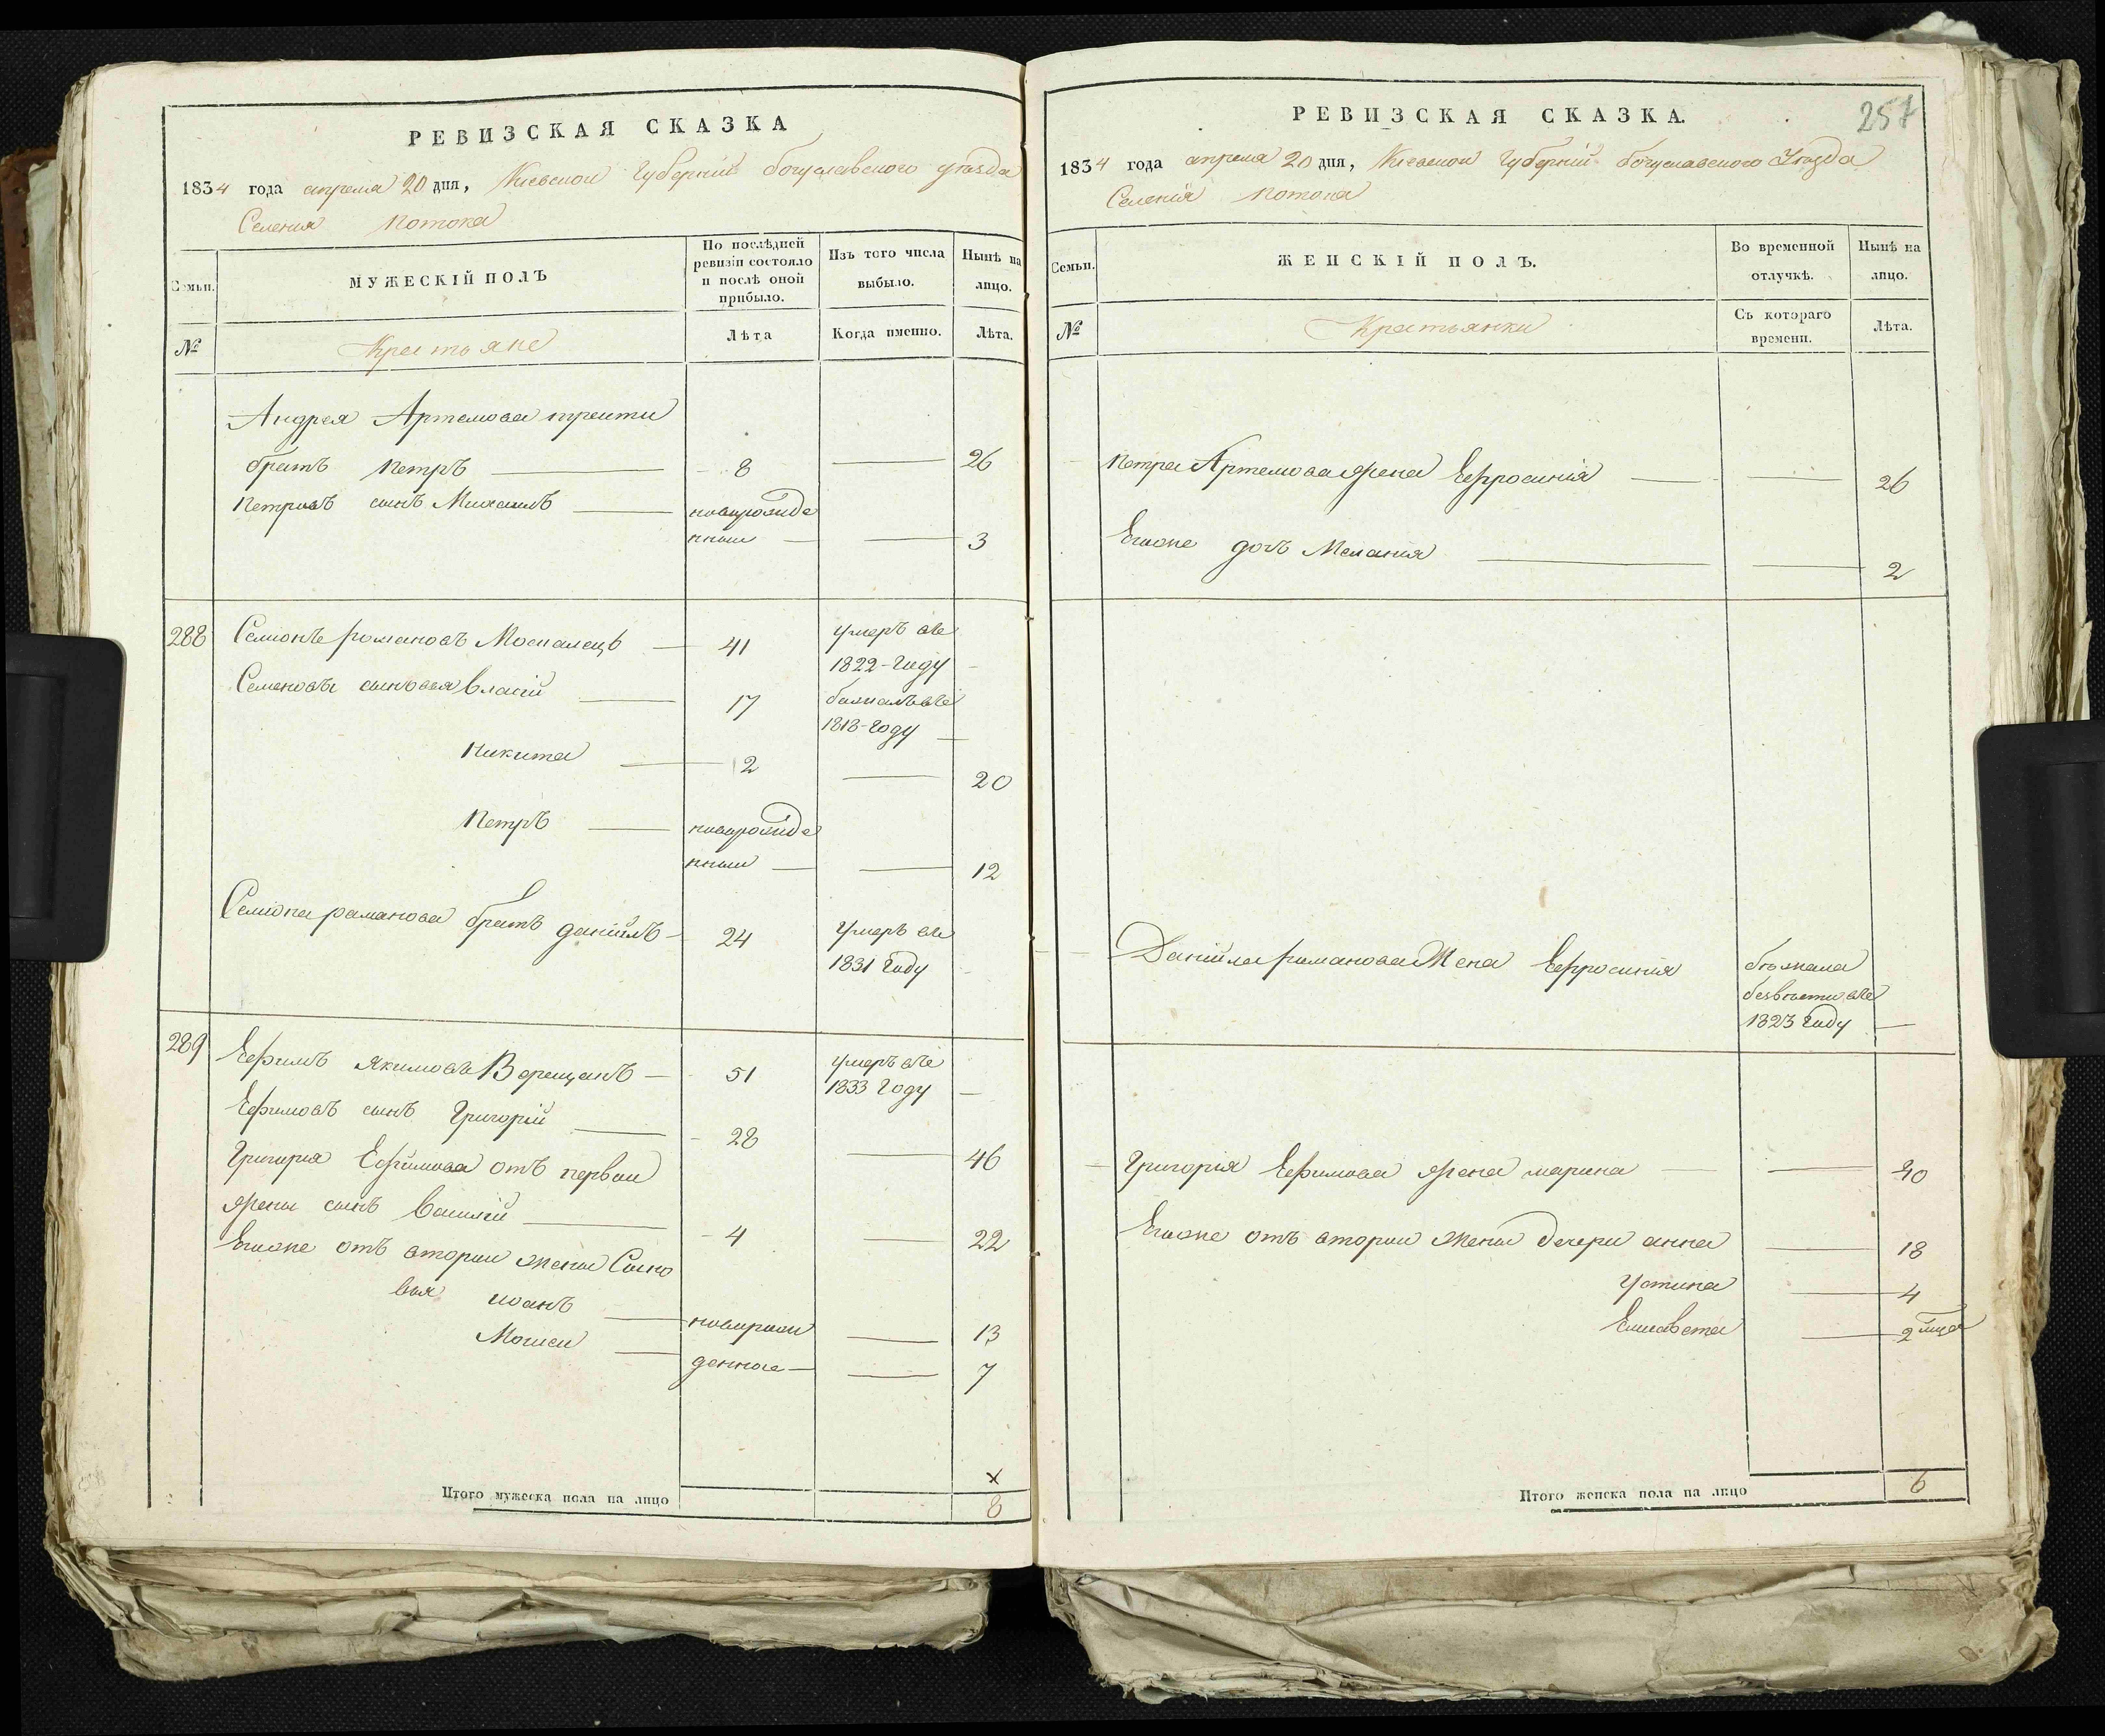 РЕВИЗСКАЯ СКАЗКА
1834 года апреля 20 дня, Киевской Губерніи богуславского уѣзда
Селения Потока
Семьи.
МУЖЕСКІЙ ПОЛЪ
По послѣдней ревизіи состояло и послѣ оной прибыло.
Изъ того числа выбыло.
Нынѣ на лицо.
№
Крестьяне
Лѣта
Когда именно.
Лѣта.
Андрея Артемова третти
братъ Петръ 8 26
Петровъ сынъ Михаилъ новорожде
нныи 3
288 Семионъ романовъ Москалецъ 41 умеръ въ
1822-Году
Семеновы сыновья власій 17 бѣжалъ въ
1818-Году
Никита 2 20
Петръ новорожде
нныи 12
Семиона романова братъ даніилъ 24 умеръ въ
1831 Году
289 Ефимъ Якимовъ Верещакъ 51 умеръ въ
1833 Году
Ефимовъ сынъ Григорій 28 46
Григорія Ефимова отъ первои
жены сынъ Василій 4 22
Егоже отъ вторыи жены Сыно
вья иванъ новорож 13
Моисеи денные 7
х
Итого мужеска пола на лицо 8
РЕВИЗСКАЯ СКАЗКА.
257
1834 года апреля 20 дня, Киевской Губерніи богуславского Уѣзда
Селенія Потока
Семьи.
ЖЕНСКІЙ ПОЛЪ.
Во временной отлучкѣ.
Нынѣ на лицо.
№
Крестьянки
Съ котораго времени.
Лѣта.
Петра Артемова жена Ефросинія 26
Егоже дочь Меланія 2
Даніила романова Жена Ефросинія бѣжала
безвѣсти въ
1823 Году
Григорія Ефимова жена марина 40
Егоже отъ вторыи жены дечери анна 18
Устина 4
Елисавета 2
Итого женска пола на лицо 6